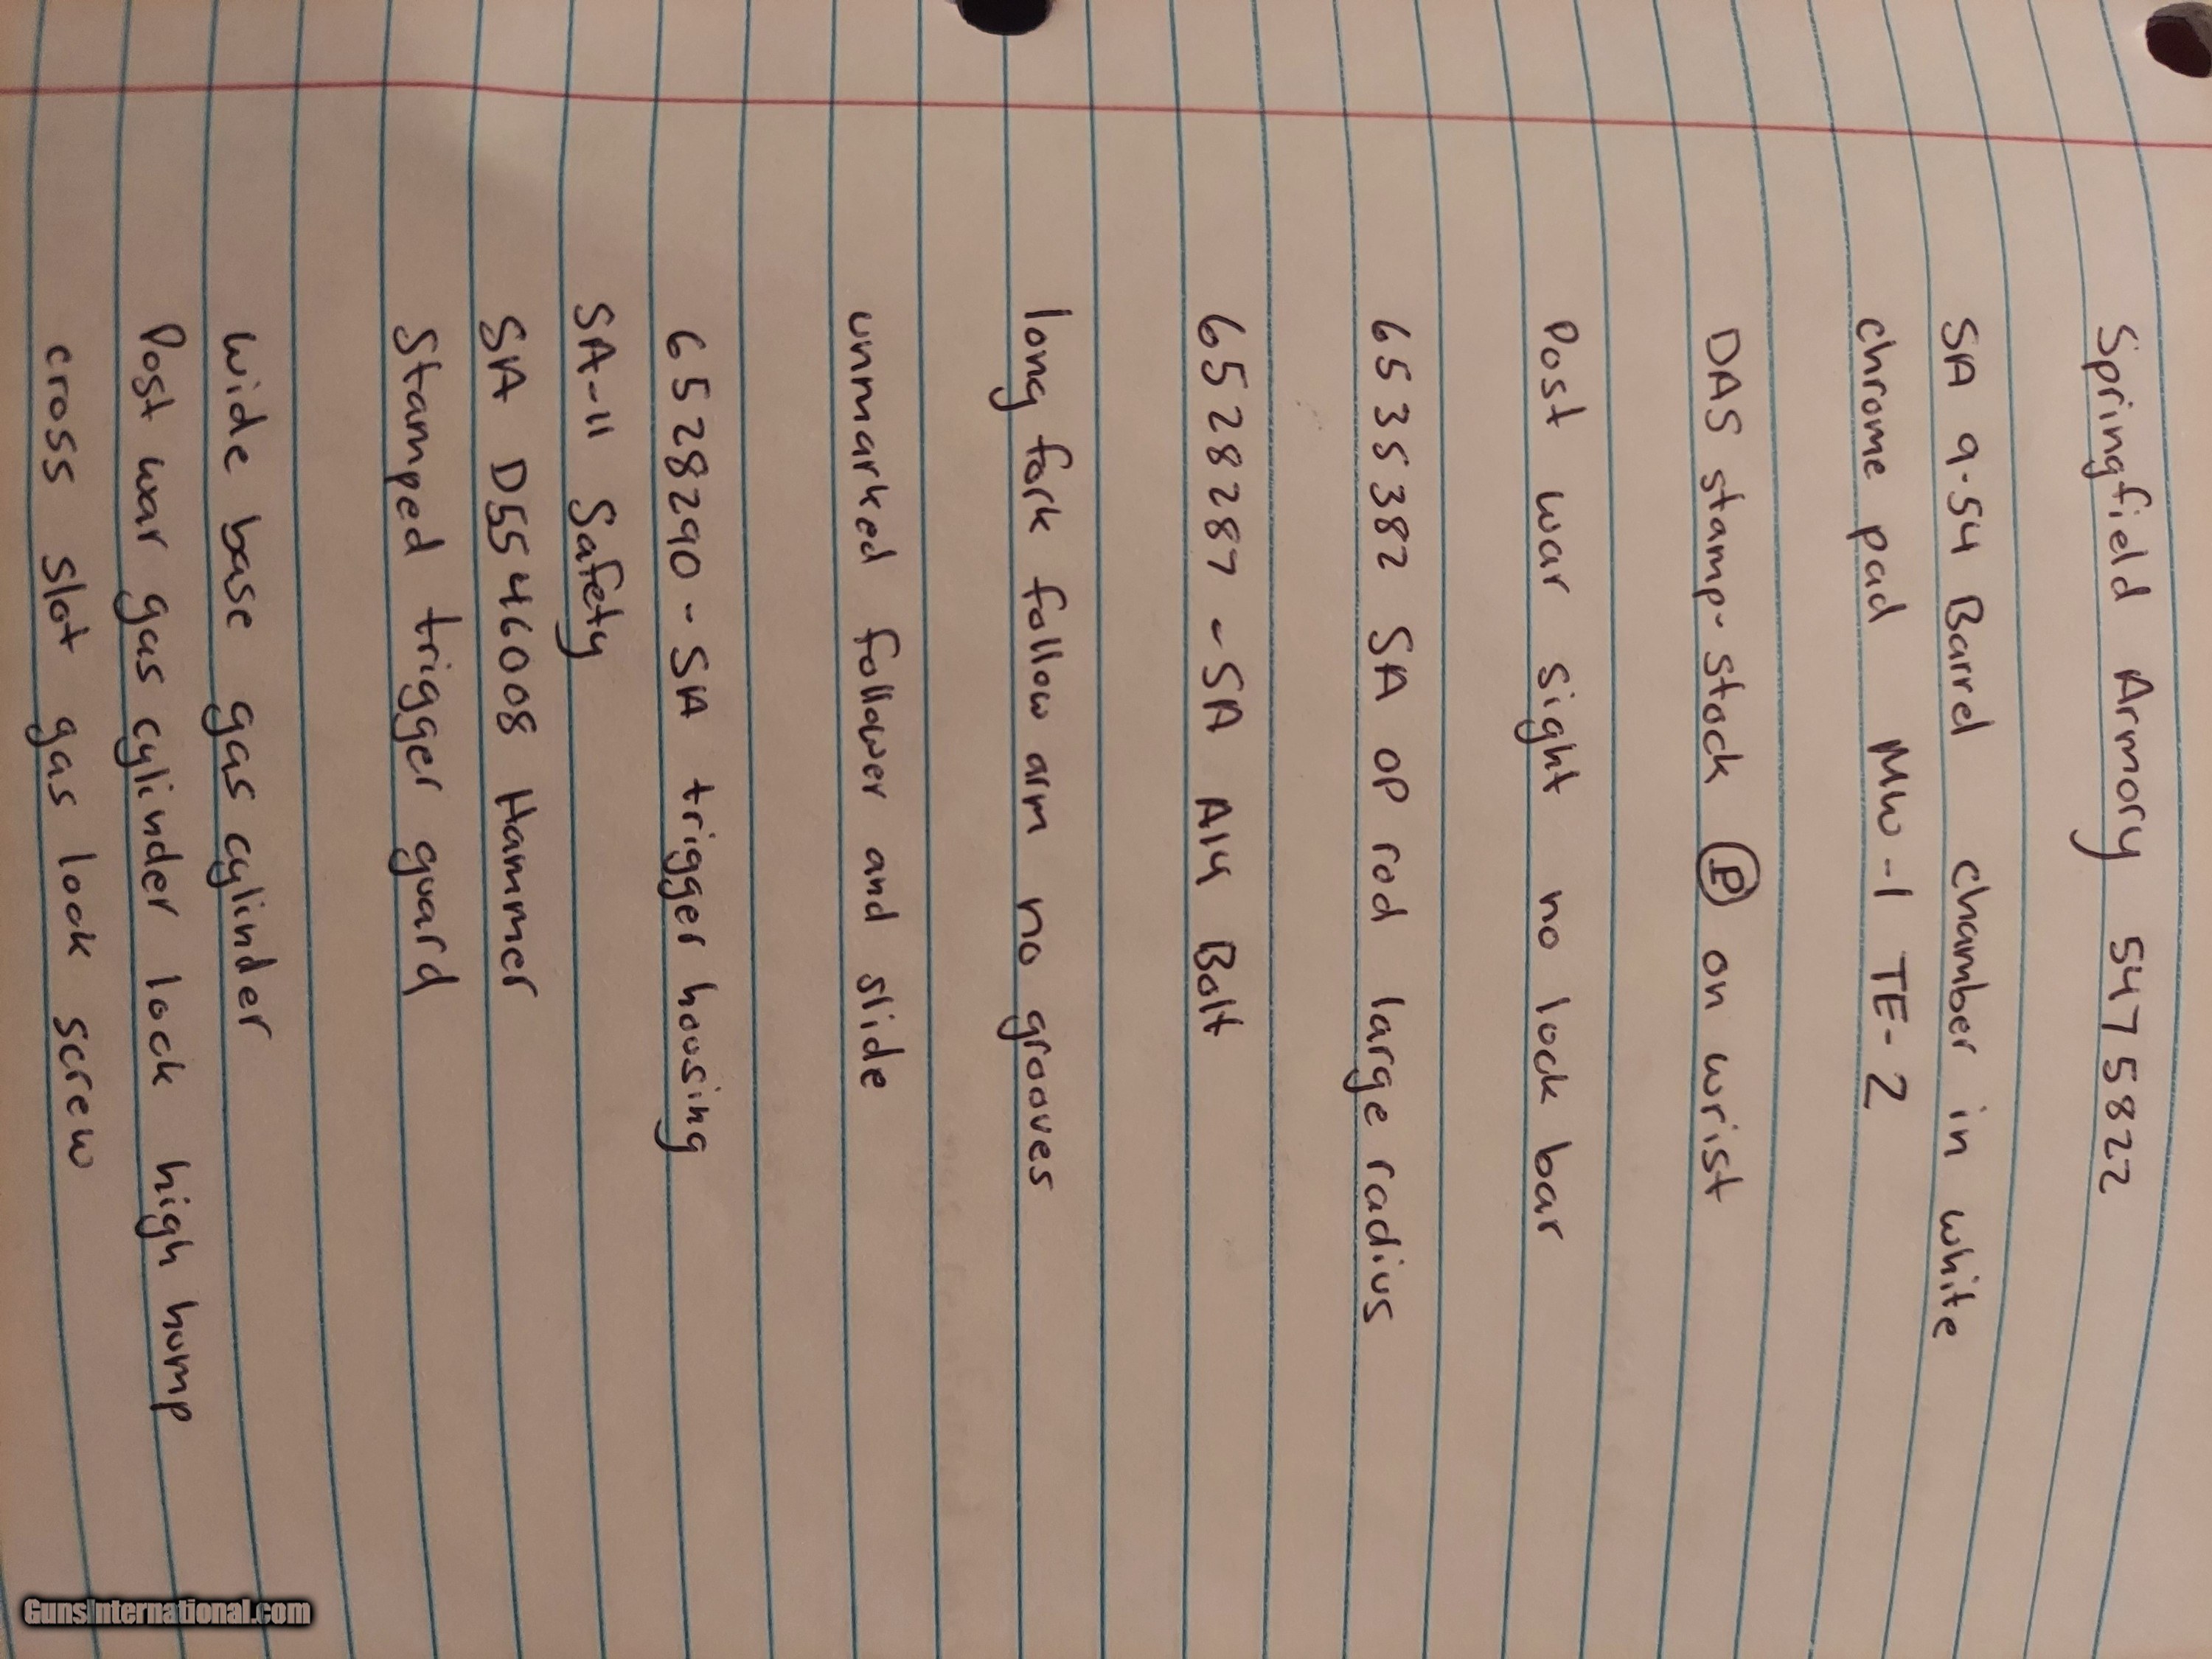 Springfield Armory 5475822
SA 9-54 Barrel chamber in white
chrome pad MW-1 TE-2
DAS stamp-stock Ⓟ on wrist
Post war sight no lock bar
6535382 SA OP rod large radius
6528287-SA A14 Bolt
long fork follow arm no grooves
unmarked follower and slide
6528290-SA trigger housing
SA-11 Safety
SA D5546008 Hammer
Stamped trigger guard
wide base gas cylinder
Post war gas cylinder lock high hump
cross slot gas lock screw
GunsInternational.com